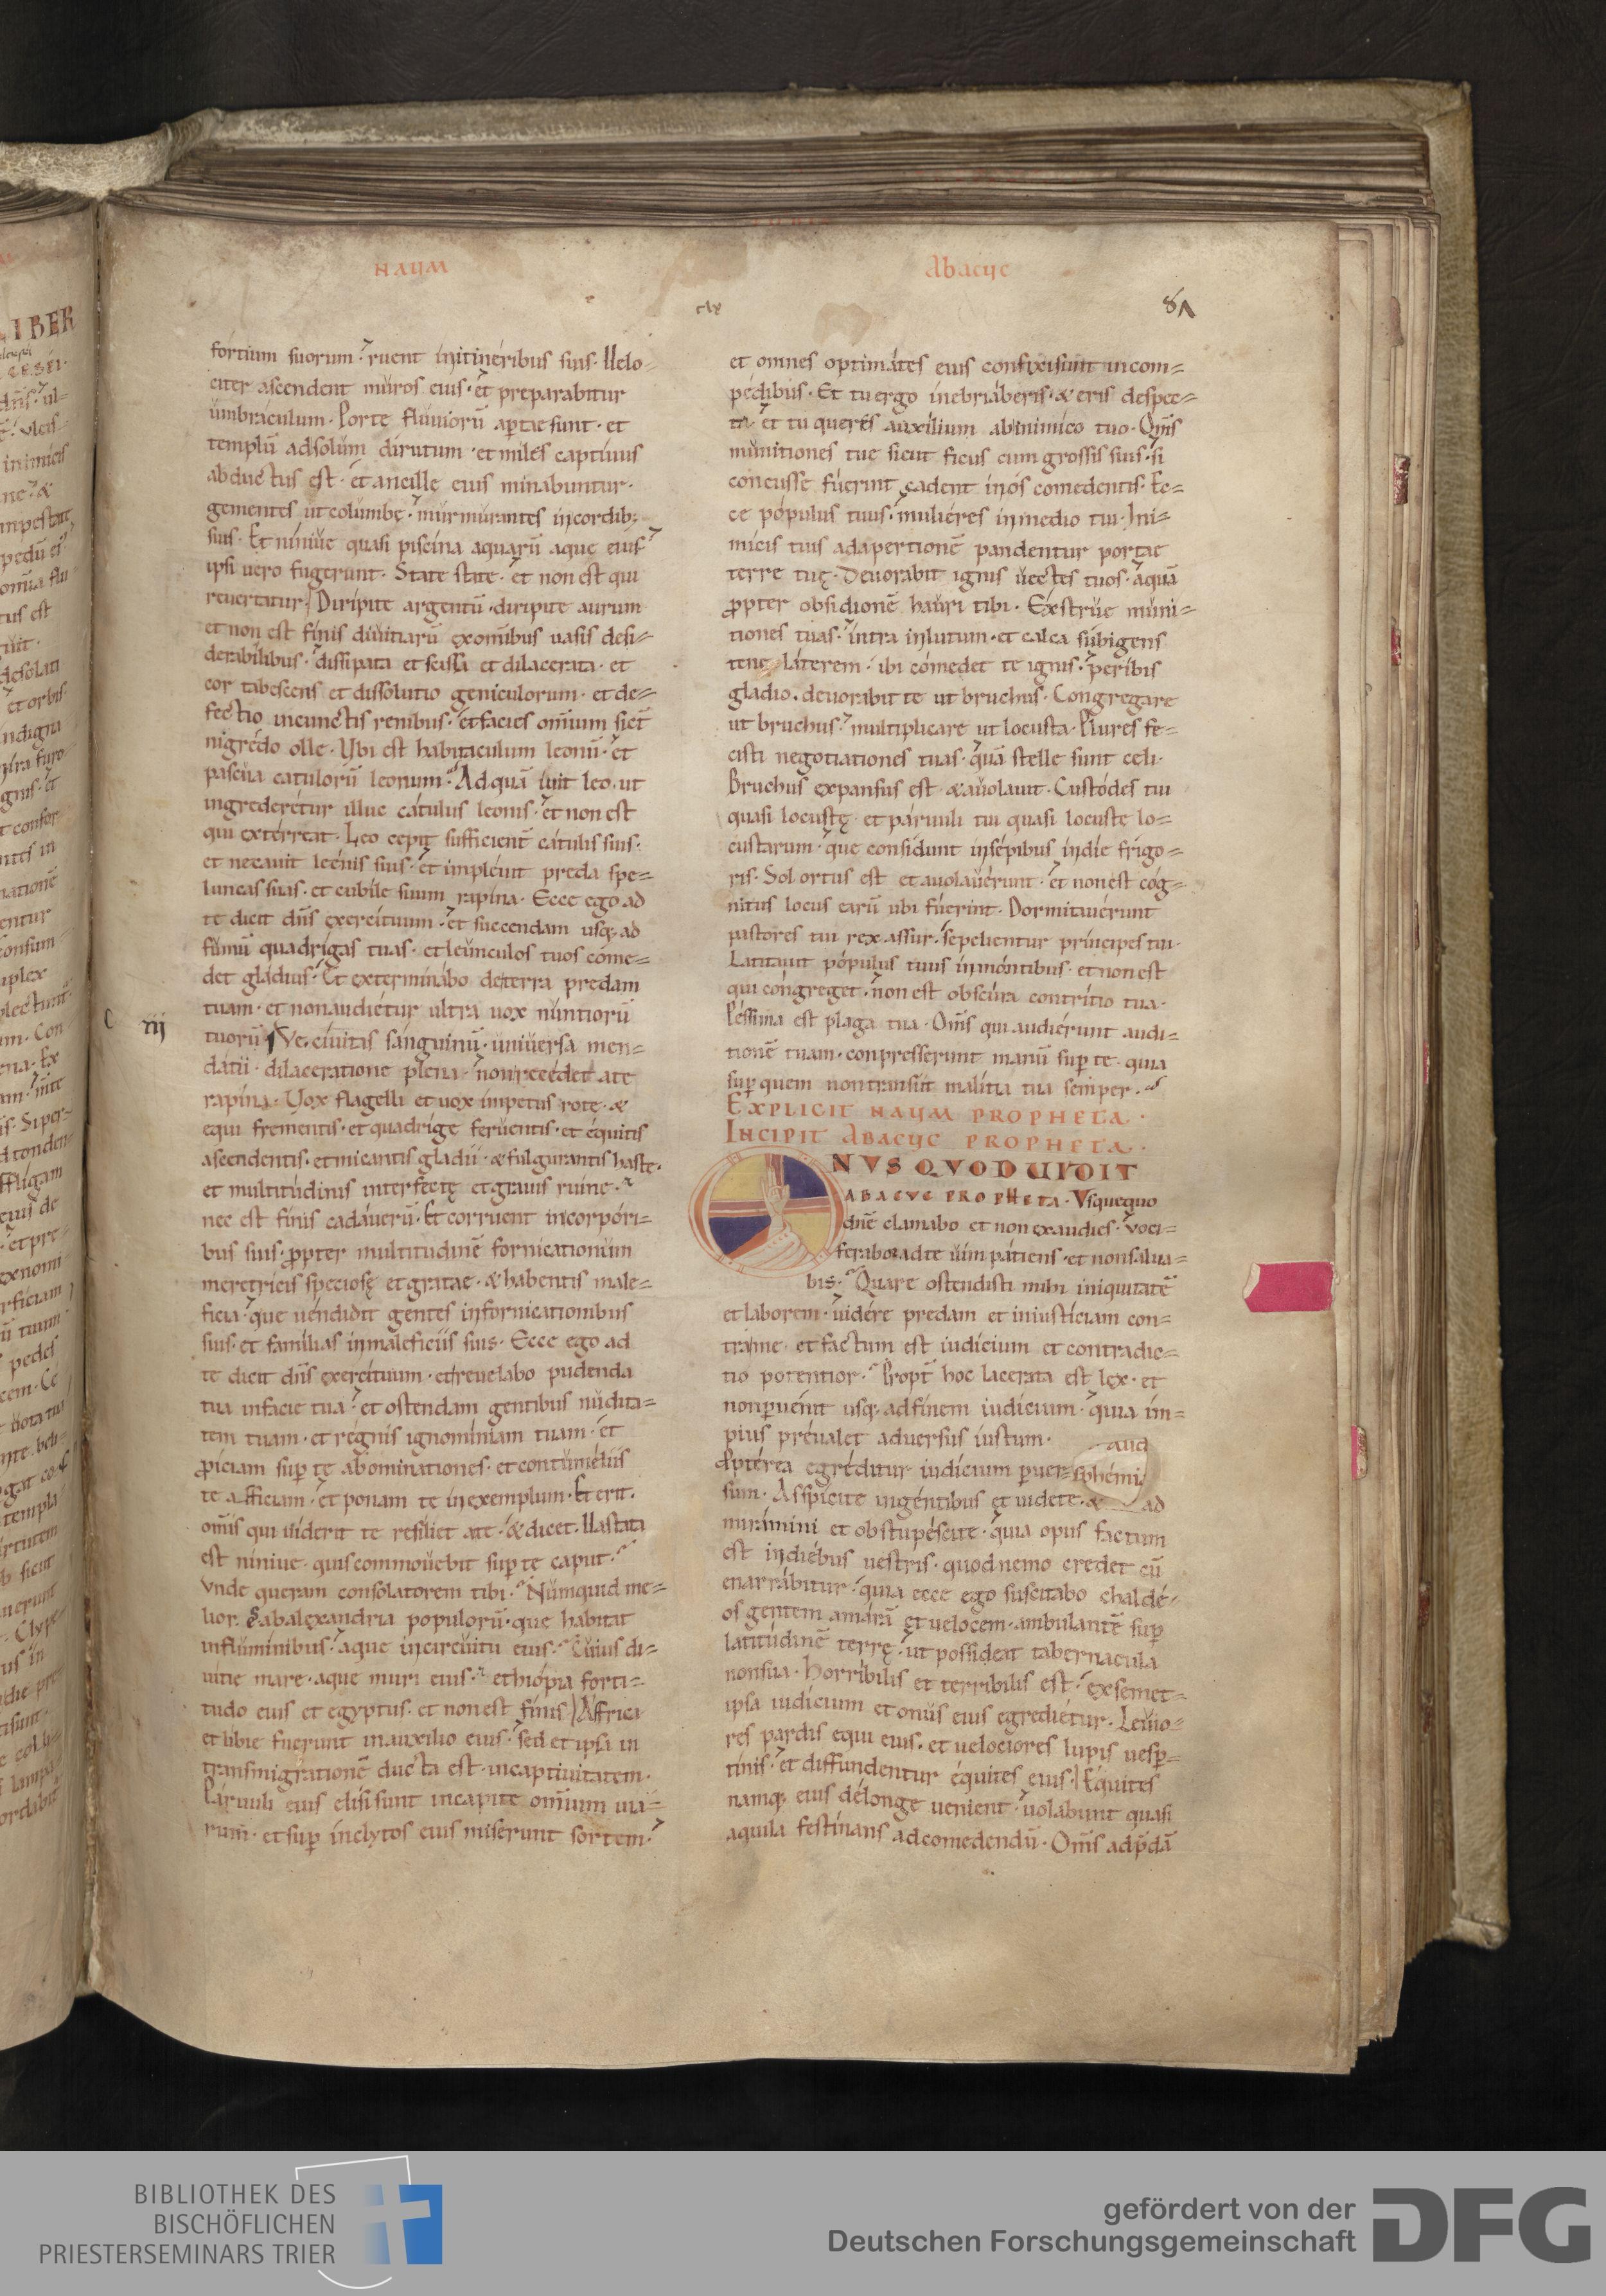 NAUM
Abacuc
fortium suorum. ruent initineribus suis. Uelo
citer ascendent muros eius. et preparabitur
umbraculum. Porte fluuiorū aptae sunt. et
templū adsolum dirutum. et miles captiuus
abductus est. et ancille eius minabuntur.
gementes ut columbę. murmurantes incordib;
suis. Et niniue quasi piscina aquarū aque eius
ipsi uero fugerunt. State state. et non est qui
reuertatur. Diripite argentū. diripite aurum
et non est finis diuitiarū exomībus uasis desi=
derabilibus. dissipata et scissa et dilacerata. et
cor tabescens et dissolutio geniculorum. et de=
fectio incunctis renibus. et facies omīum sict̄
nigredo olle. Ubi est habitaculum leonū. et
pascua catulorū leonum. Ad quā iuit leo. ut
ingrederetur illuc catulus leonis. et non est
qui exterreat. Leo cepit sufficient̄ catulis suis.
et necauit leenis suis. et impleuit preda spe=
luncas suas. et cubile suum rapina. Ecce ego ad
te dicit dn̄s exercituum. et succendam usq; ad
fumū quadrigas tuas. et leunculos tuos come=
det gladius. Et exterminabo deterra predam
tuam. et nonaudietur ultra uox nuntiorū
tuorū Ve ciuitis sanguinū. uniuersa men=
datii. dilaceratione plena. non recedet ate
rapina. Vox flagelli et uox impetus rote. &
equi frementis. et quadrige feruentis. et equitis
ascendentis. et micantis gladii. & fulgurantis haste.
et multitudinis interfectę et grauis ruine.
nec est finis cadauerū. Et corruent incorpori=
bus suis. ꝓpter multitudinē fornicationum
meretricis speciosę et gratae. & habentis male=
ficia. que uendidit gentes infornicationibus
suis. et familias inmaleficiis suis. Ecce ego ad
te dicit dn̄s exercituum. et reuelabo pudenda
tua infacie tua. et ostendam gentibus nudita=
tem tuam. et regnis ignominiam tuam. et
ꝓiciam sup̄ te abominationes. et contumeliis
te afficiam. et ponam te inexemplum. Et erit.
om̄is qui uiderit te resiliet ate. & dicet. Uastata
est niniue. quis commouebit sup̄ te caput.
Vnde queram consolatorem tibi. Numquid me=
lior. es abalexandria populorū. que habitat
influminibus. aque incircuitu eius. Cuius di=
uitie mare. aque muri eius. ethiopia forti=
tudo eius et egyptus. et non est finis. Affrica
et libie fuerunt inauxilio eius. sed et ipsa in
transmigrationē ducta est. incaptiuitatem.
Paruuli eius elisi sunt incapite omīum uia=
rum. et sup̄ inclytos eius miserunt sortem.
iij
et omnes optimates eius confixi sunt incom=
pedibus. Et tu ergo inebriaberis. & eris despec=
ta. et tu queres auxilium abinimico tuo. Om̄s
munitiones tue sicut ficus cum grossis suis. si
concusse fuerint cadent inos comedentis. Ec=
ce populus tuus. mulieres inmedio tui. Ini=
micis tuis adapertionē pandentur portae
terre tuę. Deuorabit ignis uectes tuos. aquā
ꝓpter obsidionē hauri tibi. Exstrue muni=
tiones tuas. intra inlutum. et calca subigens
tene laterem. ibi comedet te ignis. peribis
gladio. deuorabit te ut bruchus. Congregare
ut bruchus. multiplicare ut locusta. Plures fe=
cisti negotiationes tuas. quā stelle sunt celi.
Bruchus expansus est & auolauit. Custodes tui
quasi locustę. et paruuli tui quasi locuste lo=
custarum. que considunt insepibus indie frigo=
ris. Sol ortus est et auolauerunt. et non est cog=
nitus locus earū ubi fuerint. Dormitauerunt
pastores tui rex assur. sepelientur principes tui.
Latitauit populus tuus inmontibus. et non est
qui congreget. non est obscura contritio tua.
Pessima est plaga tua. Om̄s qui audierunt audi=
tionē tuam. conpresserunt manū sup̄ te. quia
sup̄ quem nontransiit malitia tua semper.
EXPLICIT NAUM PROPHETA.
INCIPIT ABACUC PROPHETA.
ONUS QUOD UIDIT
ABACUC PROPHETA. Vsquequo
dn̄e clamabo et non exaudies. uoci=
feraborad te uim patiens. et non salua=
bis. Quare ostendisti mihi iniquitatē
et laborem. uidere predam et iniusticiam con=
tra me. et factum est iudicium et contradic=
tio potentior. Propt̄ hoc lacerata est lex. et
non ꝑuenit usq; adfinem iudicium. quia im=
pius preualet aduersus iustum.
ꝓpterea egreditur iudicium ꝑuer=
sum. Aspicite ingentibus et uidete. & ad
miramini et obstupescite. quia opus factum
est indiebus uestris. quod nemo credet cū
enarrabitur. quia ecce ego suscitabo chalde=
os gentem amarā et uelocem. ambulantē sup̄
latitudinē terrę. ut possideat tabernacula
nonsua. Horribilis et terribilis est. exsemet=
ipsa iudicium et onus eius egredietur. Leuio=
res pardis equi eius. et uelociores lupis uesp̄=
tinis. et diffundentur equites eius. Equites
namq; eius delonge uenient. uolabunt quasi
aquila festinans ad comedendū. Om̄s adp̄dā
BIBLIOTHEK DES
BISCHÖFLICHEN
PRIESTERSEMINARS TRIER
gefördert von der
Deutschen Forschungsgemeinschaft
DFG